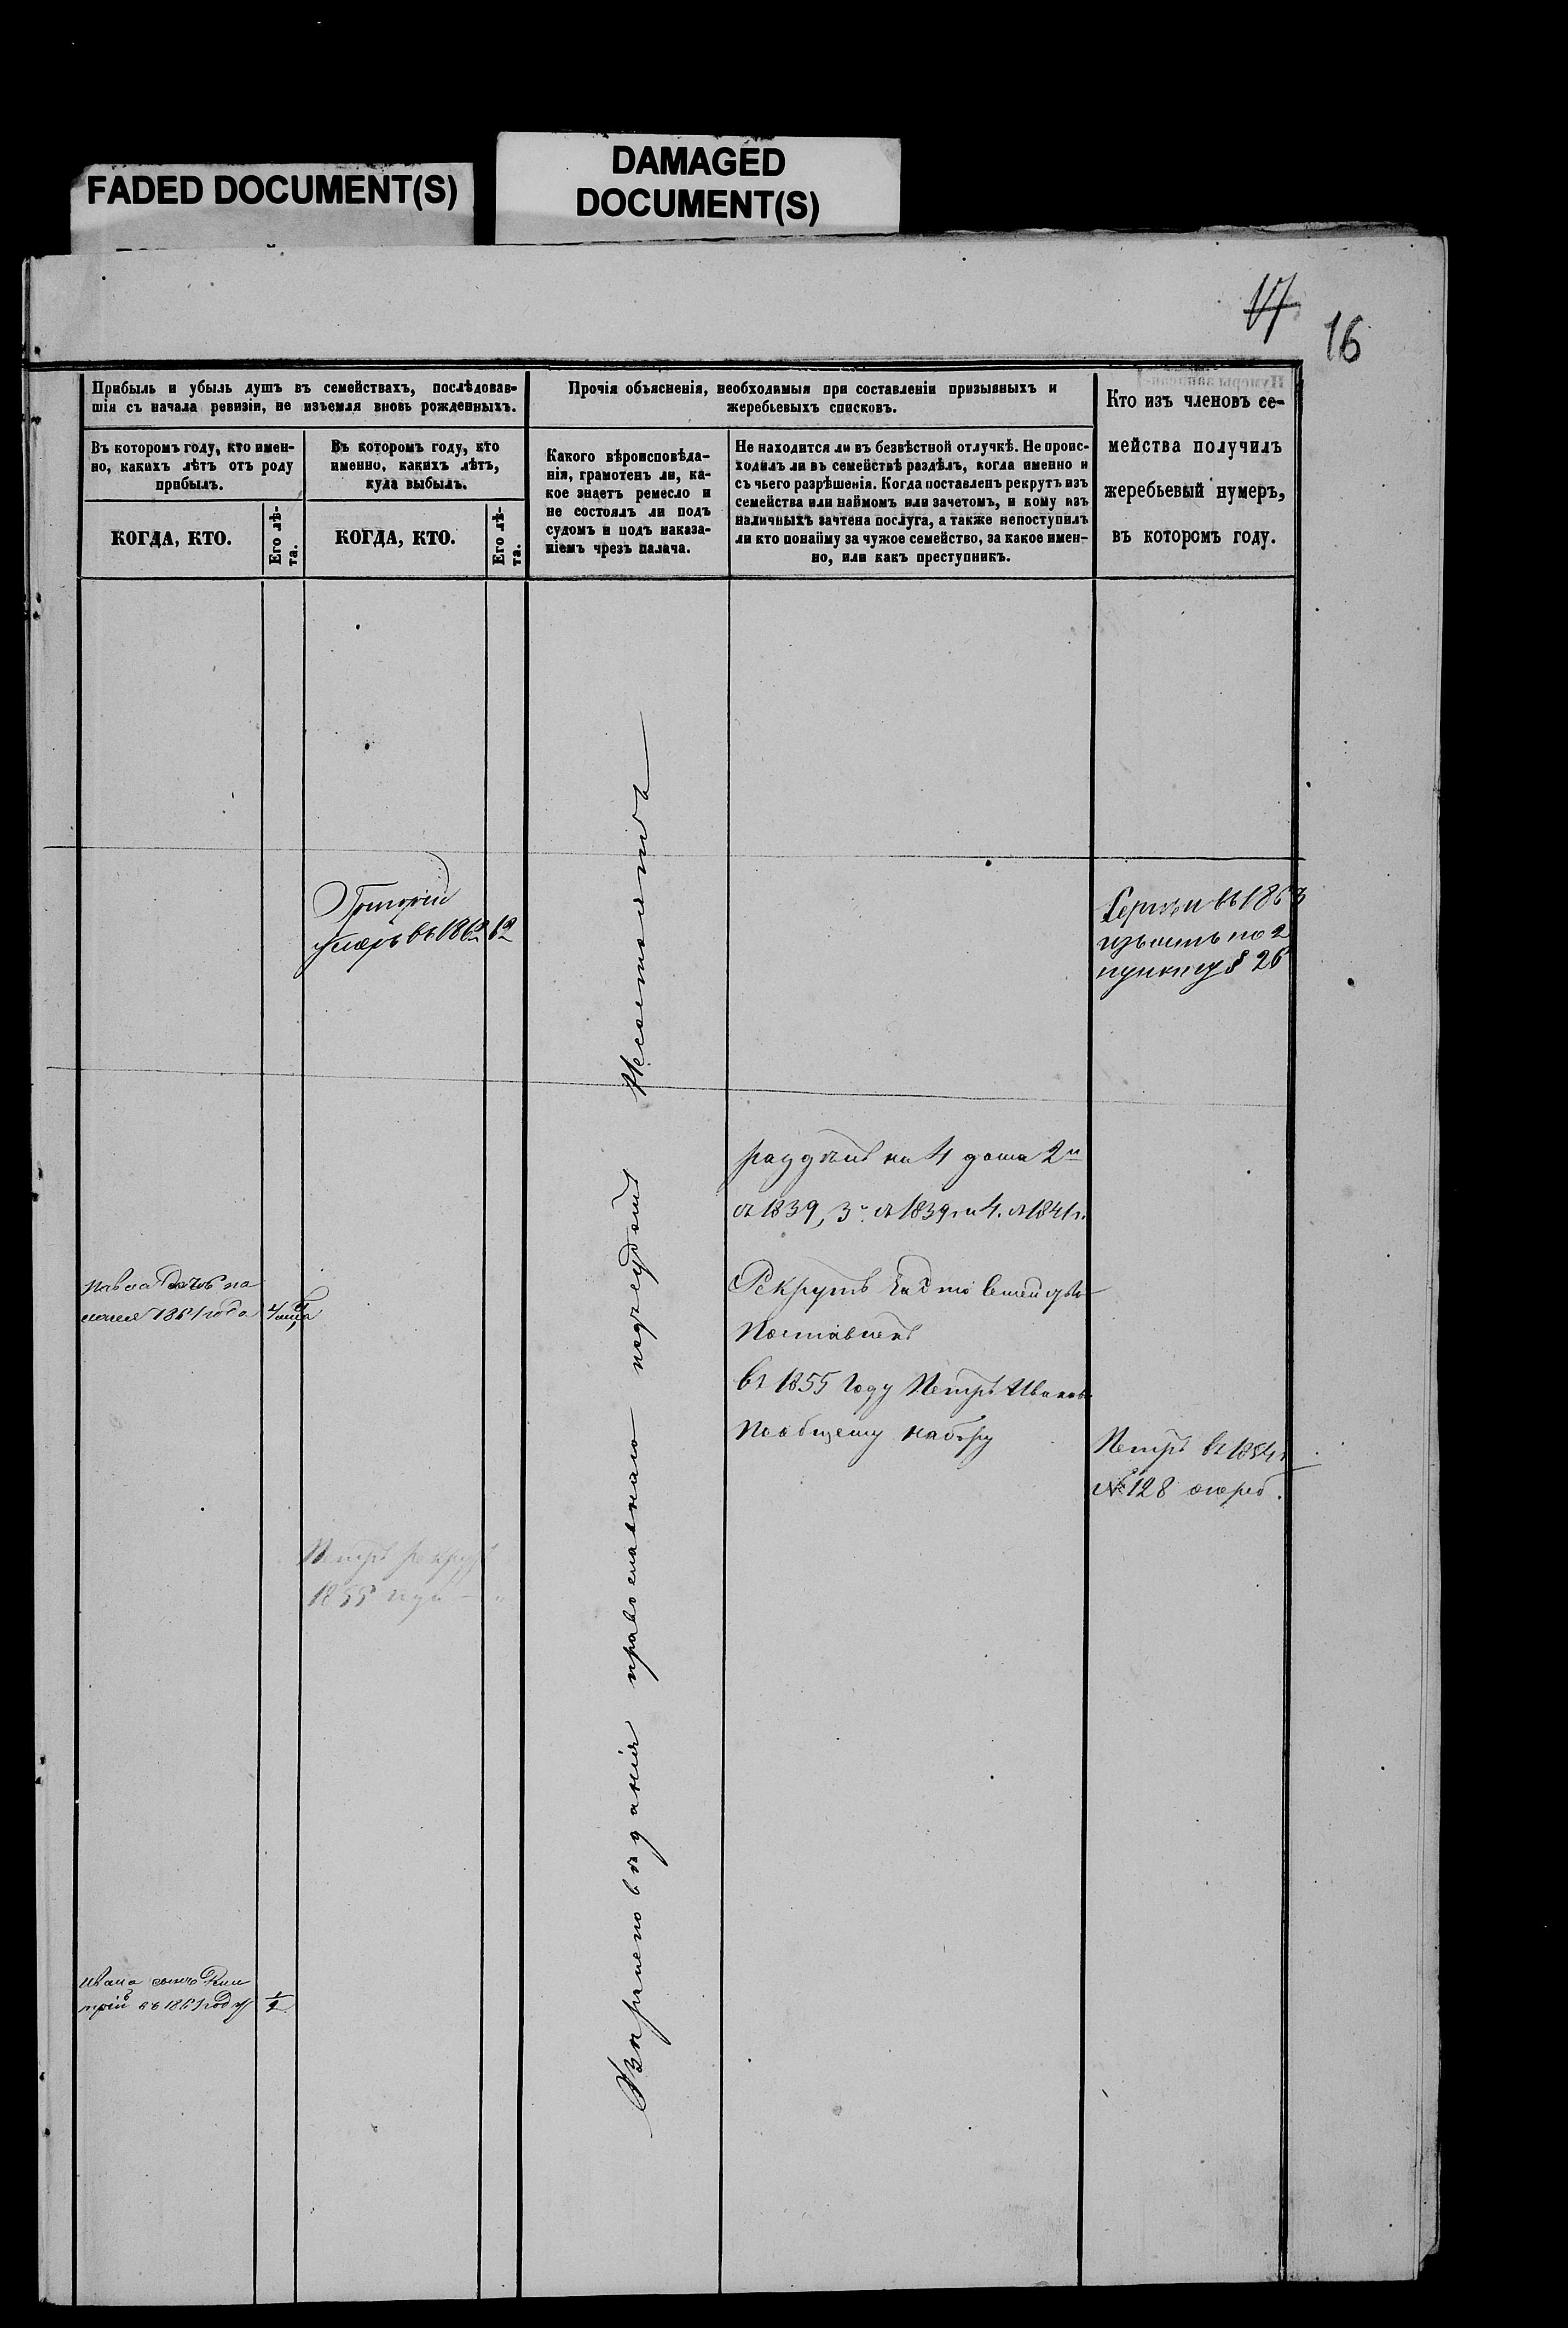 FADED DOCUMENT(S)
DAMAGED
DOCUMENT(S)
17
16
Прибыль и убыль душъ въ семействахъ, послѣдовав-
шія съ начала ревизіи, не изъемля вновь рожденныхъ.
Въ которомъ году, кто имен-
но, какихъ лѣтъ отъ роду
прибылъ.
КОГДА, КТО.
Его лѣ-
та.
Въ которомъ году, кто
именно, какихъ лѣтъ,
куда выбылъ.
КОГДА, КТО.
Его лѣ-
та.
Прочія объясненія, необходимыя при составленіи призывныхъ и
жеребьевыхъ списковъ.
Какого вѣроисповѣда-
нія, грамотенъ ли, ка-
кое знаетъ ремесло и
не состоялъ ли подъ
судомъ и подъ наказа-
ніемъ чрезъ палача.
Не находится ли въ безвѣстной отлучкѣ. Не проис-
ходилъ ли въ семействѣ раздѣлъ, когда именно и
съ чьего разрѣшенія. Когда поставленъ рекрутъ изъ
семейства или наймомъ или зачетомъ, и кому изъ
наличныхъ зачтена послуга, а также непоступилъ
ли кто понайму за чужое семейство, за какое имен-
но, или какъ преступникъ.
Кто изъ членовъ се-
мейства получилъ
жеребьевый нумеръ,
въ которомъ году.
Григорій
умеръ въ 1862
62
Сергѣй въ 1863
изъятъ по 2
пункту § 26
на 4 дома 2й
въ 1839, 3й въ 1839 и 4. въ 1841 г.
Павла
1861 года
Рекрутъ
Поставленъ
въ 1855 году Петръ Ивановъ
Пообщему набору
Петръ въ 1854 г
№ 128
Петръ рекрутъ
1855 года
Ивана сынъ Дми
трій въ 1861 году
1/2
Вѣроисповѣданія православнаго подсудомъ Несостоитъ